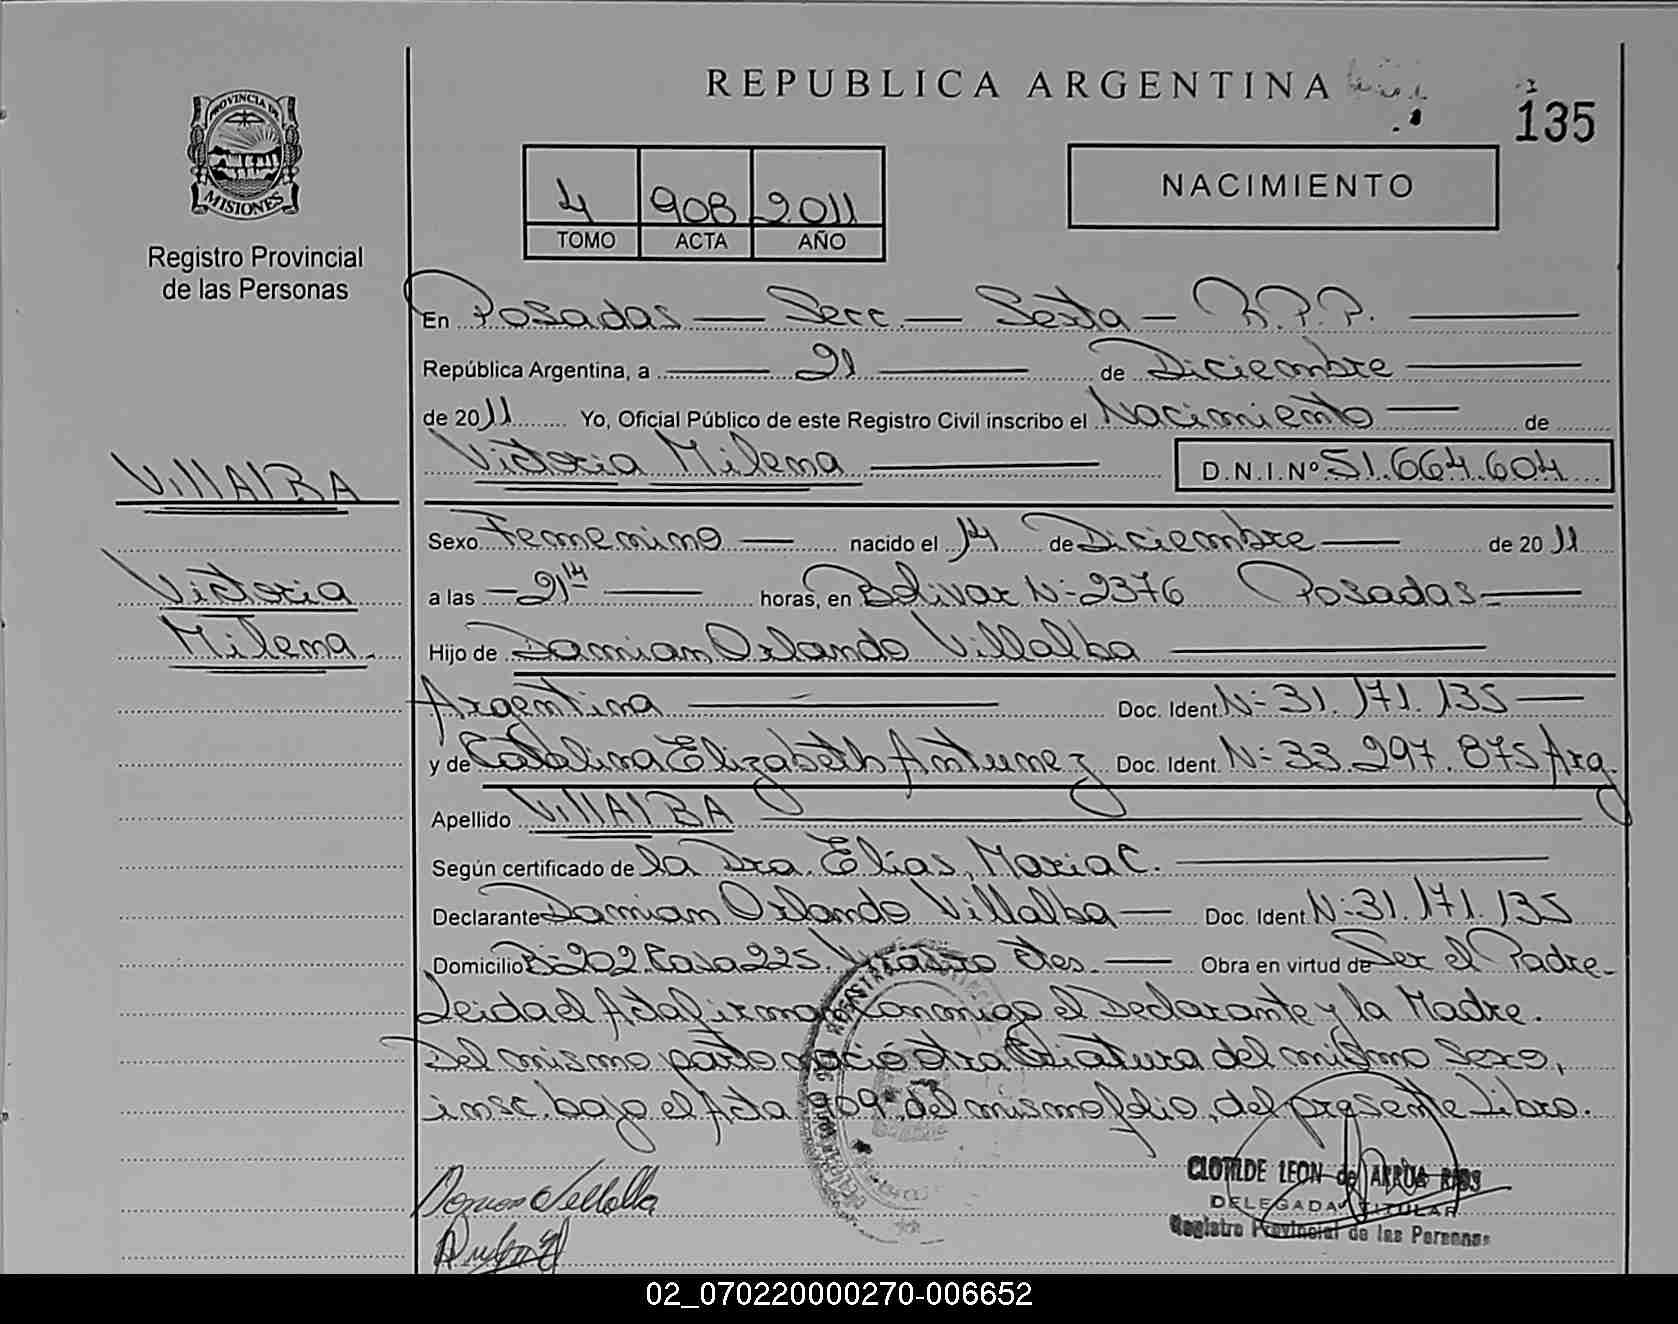 REPUBLICA ARGENTINA
135
PROVINCIA DE
MISIONES
Registro Provincial
de las Personas
4 908 2011
TOMO ACTA AÑO
NACIMIENTO
En Posadas — Secc. — Sexta — R.P.P. —
República Argentina, a — 21 — de Diciembre —
de 2011 Yo, Oficial Público de este Registro Civil inscribo el Nacimiento — de
Victoria Milena — D.N.I.Nº 51.664.604
VillAlBA
Victoria
Milena.
Sexo Femenino — nacido el 14 de Diciembre — de 2011
a las — 21 14 — horas, en Bolivar N- 2376 Posadas —
Hijo de Damian Orlando Villalba —
Argentina — Doc. Ident. N- 31.171.135 —
y de Catalina Elizabeth Antunez Doc. Ident. N- 33.297.875 Arg.
Apellido VillAlBA —
Según certificado de la Dra. Elias, Maria C. —
Declarante Damian Orlando Villalba — Doc. Ident. N- 31.171.135
Domicilio B- 202 Casa 225. Virasoro Ctes. — Obra en virtud de Ser el Padre-
Leida el Acta firman conmigo el Declarante y la Madre.
Del mismo parto nació otra Criatura del mismo Sexo,
insc. bajo el Acta 909 del mismo folio, del presente Libro.
CLOTILDE LEON de ARRUA RIOS
DELEGADA TITULAR
Registro Provincial de las Personas
02_070220000270-006652